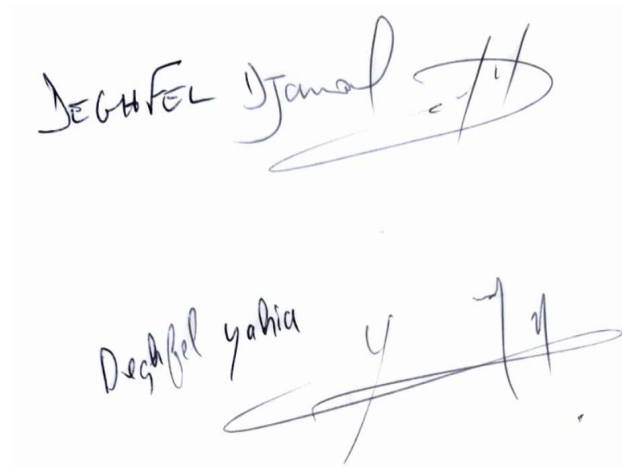 DEGHFEL Djamal
Deghfel yahia